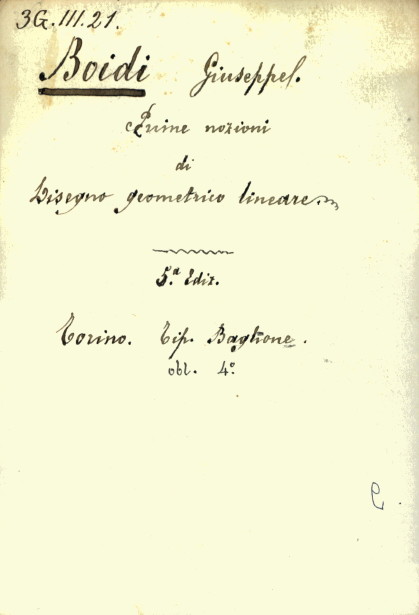 3G.III.21.
Boidi Giuseppe.
Prime nozioni
di
Disegno geometrico lineare.
5.ª Ediz.
Torino. Tip. Baglione.
obl. 4°